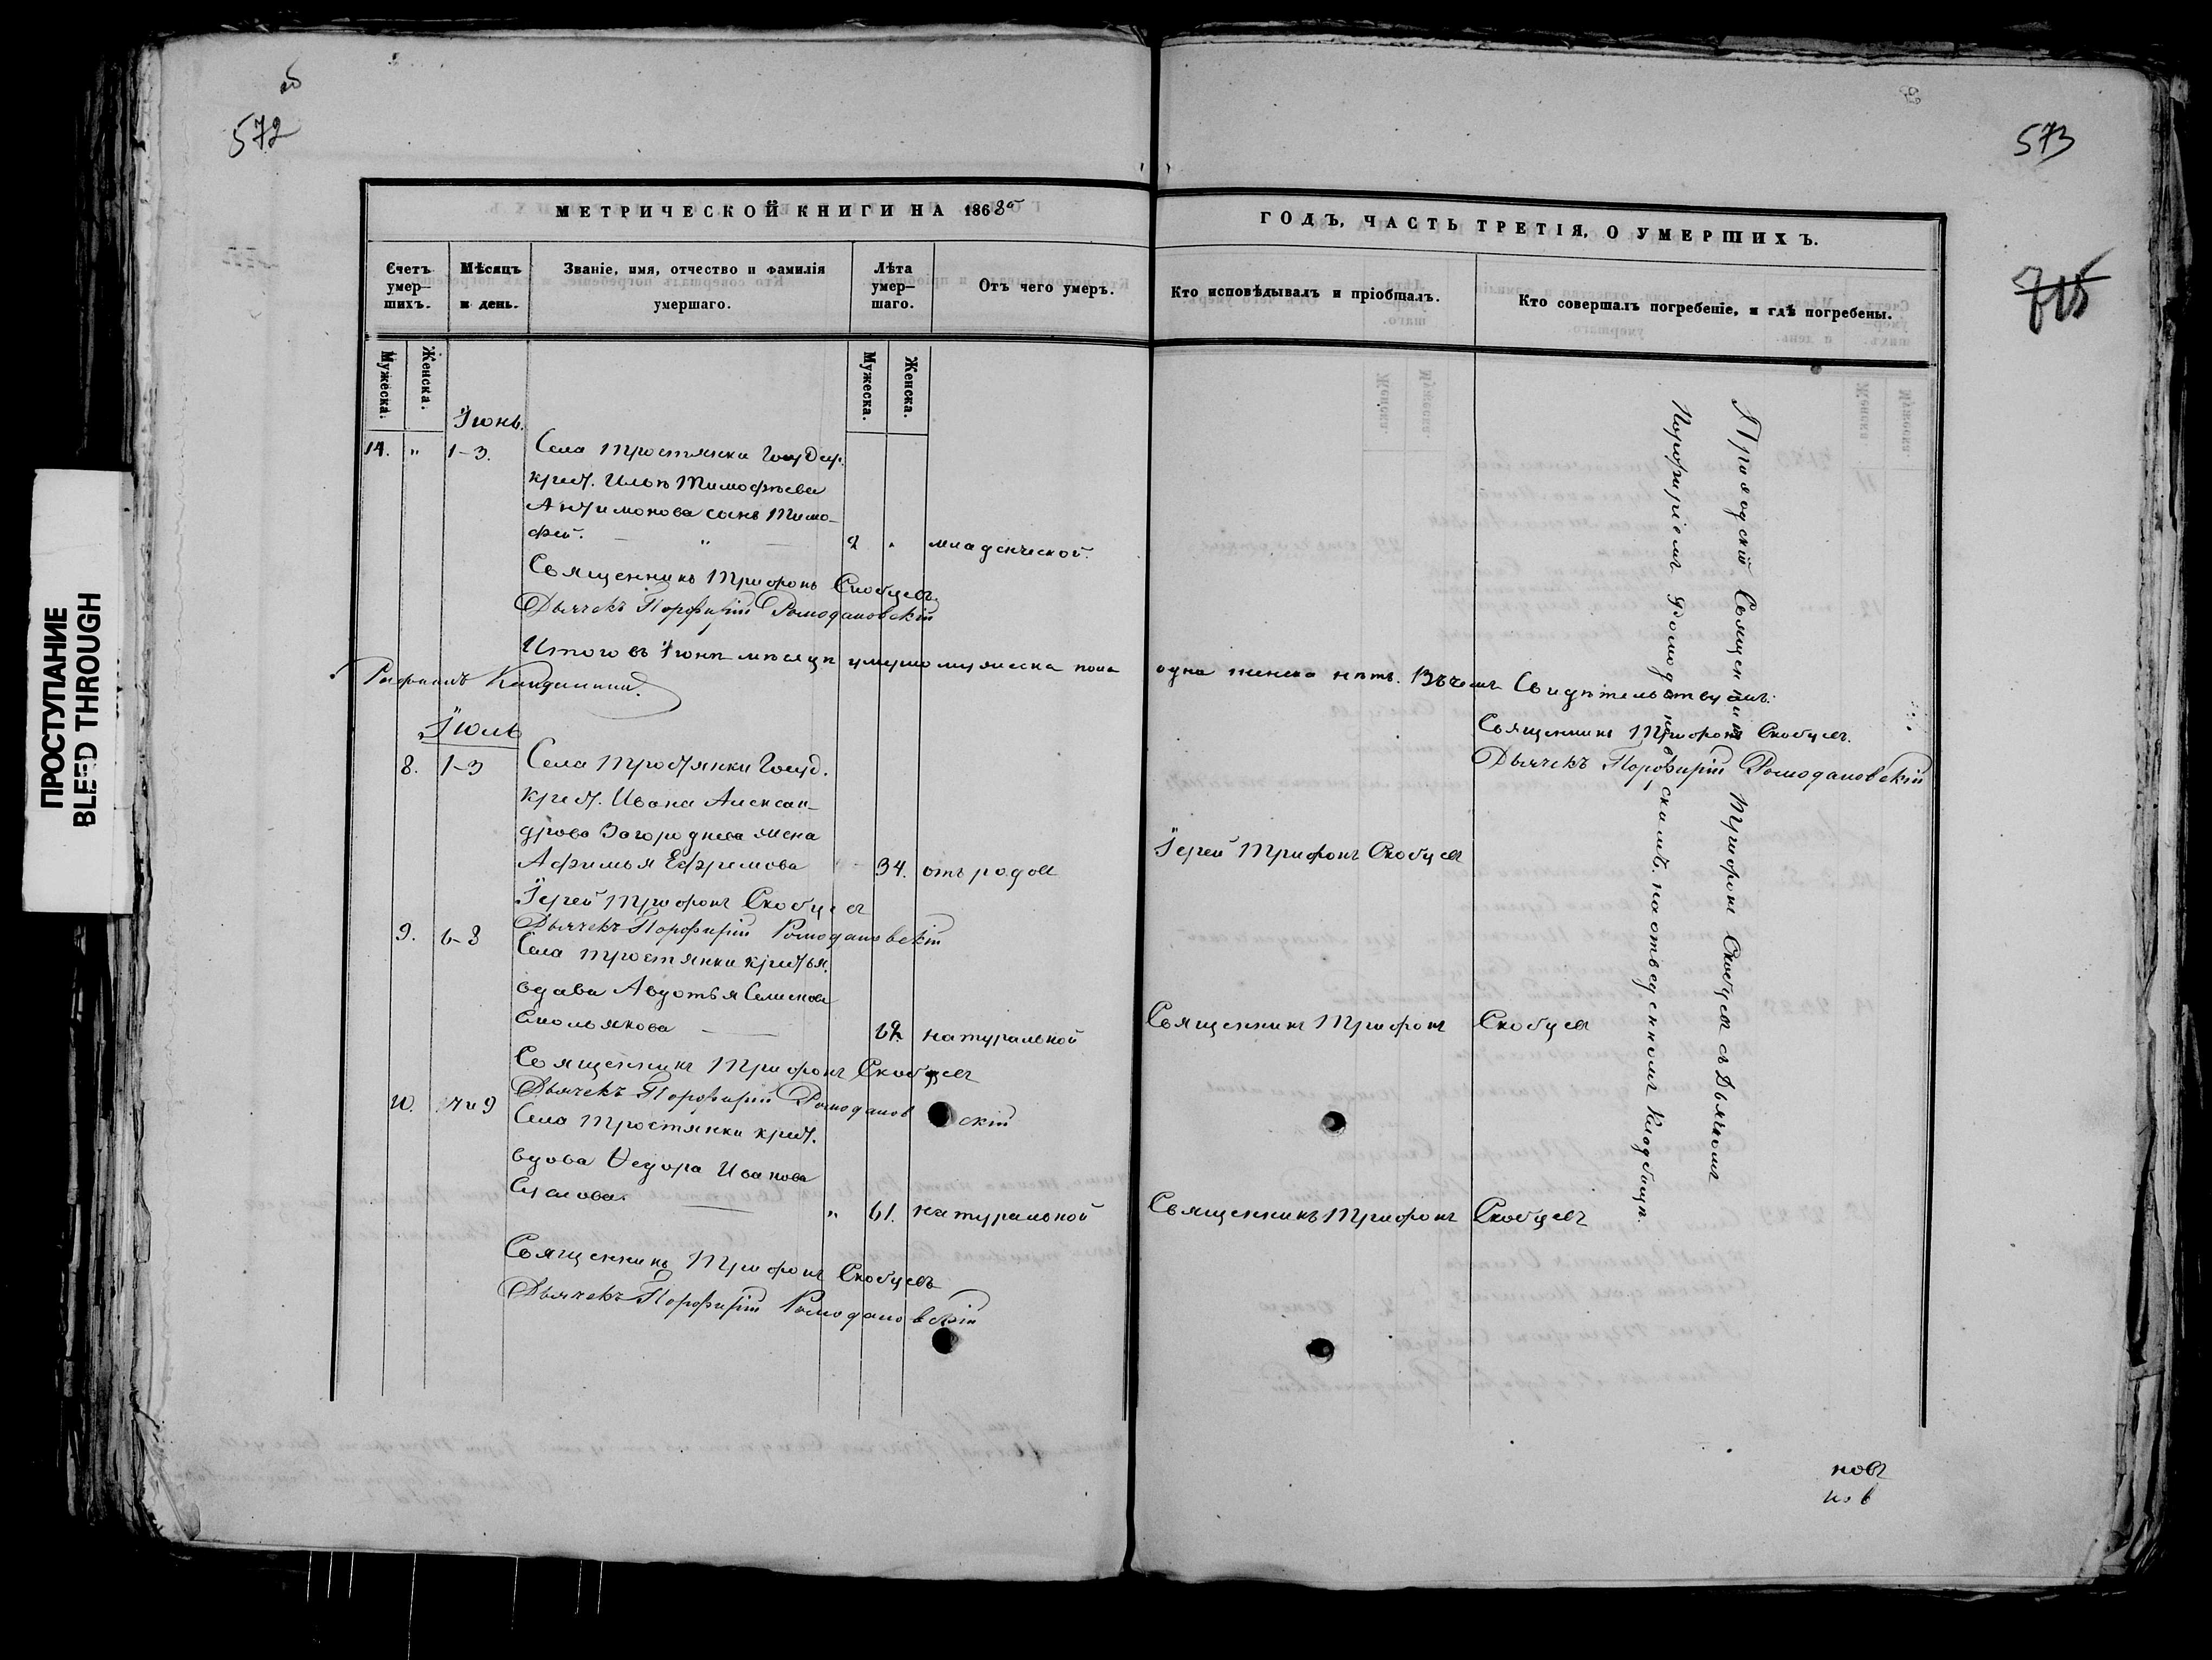 572
573
715
ПРОСТУПАНИЕ
BLEED THROUGH
МЕТРИЧЕСКОЙ КНИГИ НА 1868й
ГОДЪ, ЧАСТЬ ТРЕТІЯ, О УМЕРШИХЪ.
Счетъ умер—шихъ.
Мѣсяцъ и день.
Званіе, имя, отчество и фамилія умершаго.
Лѣта умер—шаго.
Отъ чего умеръ.
Кто исповѣдывалъ и пріобщалъ.
Кто совершалъ погребеніе, и гдѣ погребены.
Мужеска.
Женска.
Мужеска.
Женска.
Іюнь.
14. " 1-3. Села Тростянки Госуд.
крест. Ильи Тимофѣева
Антимонова сынъ Тимо-
фей. — " — 2 . младенческой.
Священникъ Трифонъ Скобцевъ
Дьячекъ Порфирій Ромодановскій
Итого въ Іюнѣ мѣсяцѣ умершо мужеска пола одна женска нѣтъ. Въ чемъ Свидѣтельствуемъ:
Священникъ Трифонъ Скобцевъ.
Дьячекъ Порфирій Ромодановскій
Іюль
8. 1-3 Села Тростянки Госуд.
крест. Ивана Алексан-
дрова Загороднева жена
Афимья Ефремова 34. отъ родов Іерей Трифонъ Скобцев
Іерей Трифонъ Скобцев
Дьячекъ Порфирій Ромодановскій
9. 6-8 Села Тростянки крестья.
вдова Авдотья Семенова
Смольякова — 62. натуральной Священникъ Трифонъ Скобцев
Священникъ Трифонъ Скобцев
Дьячекъ Порфирій Ромодановскій
10. 7и9 Села Тростянки крест.
вдова Ѳедора Иванова
— " 61. натуральной Священникъ Трифонъ Скобцевъ
Священникъ Трифонъ Скобцевъ
Дьячекъ Порфирій Ромодановскій
Приходскій Священникъ Трифонъ Скобцев съ Дьячкомъ
Порфиріемъ Ромодановскимъ. на отведенномъ Кладбищѣ.